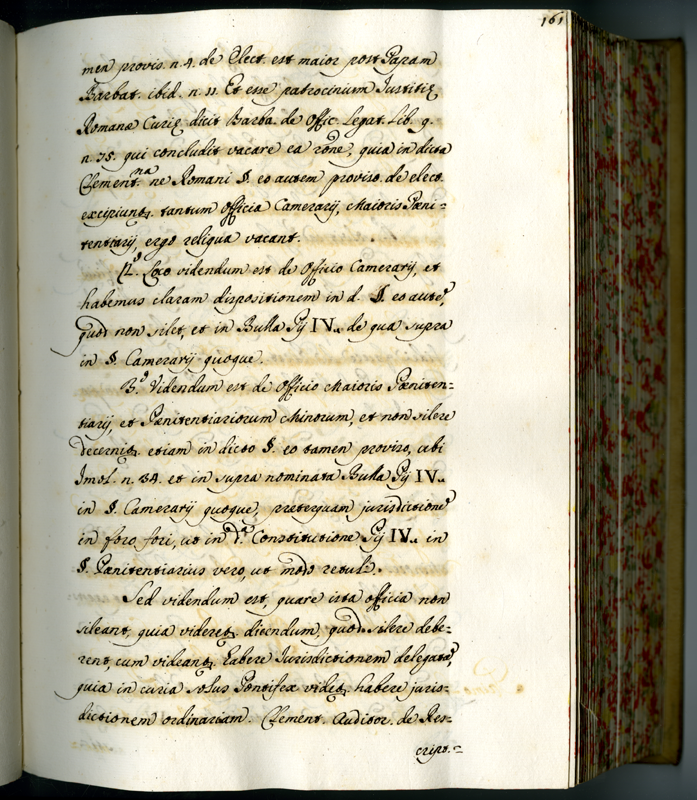 161
men provis. n. 4. de Elect. est maior post Papam
Barbat. ibid. n. 11. Et esse patrocinium Iustitię
Romanæ Curię dicit Barba. de Offic. Legat. Lib. 9.
n. 75. qui concludit vacare ea rõne, quia in dicta
Clement.na ne Romani §. eo autem proviso. de elect.
excipiunt. tantum officia Camerarij, Maioris Pæni=
tentiarij, ergo reliqua vacant.
2.º Loco videndum est de Officio Camerarij, et
habemus claram dispositionem in d. §. eo autē,
quod non silet, et in Bulla Pij IV. de qua supra
in §. Camerarij quoque.
3.º Videndum est de Officio Maioris Pæniten=
tiarij, et Pænitentiariorum Minorum, et non silere
decernit. etiam in dicto §. eo tamen proviso, ubi
Imol. n. 34. et in supra nominata Bulla Pij IV.
in §. Camerarij quoque, præterquam jurisdictionē
in foro fori, ut in d.a Constitutione Pij IV. in
§. Pænitentiarius vero, ut modo retuli.
Sed videndum est, quare ista officia non
sileant, quia videret. dicendum, quod silere debe=
rent, cum videant. habere Iurisdictionem delegatā,
quia in curia solus Pontifex videt. habere juris=
dictionem ordinariam. Clement. Auditor. de Res=
cript.=